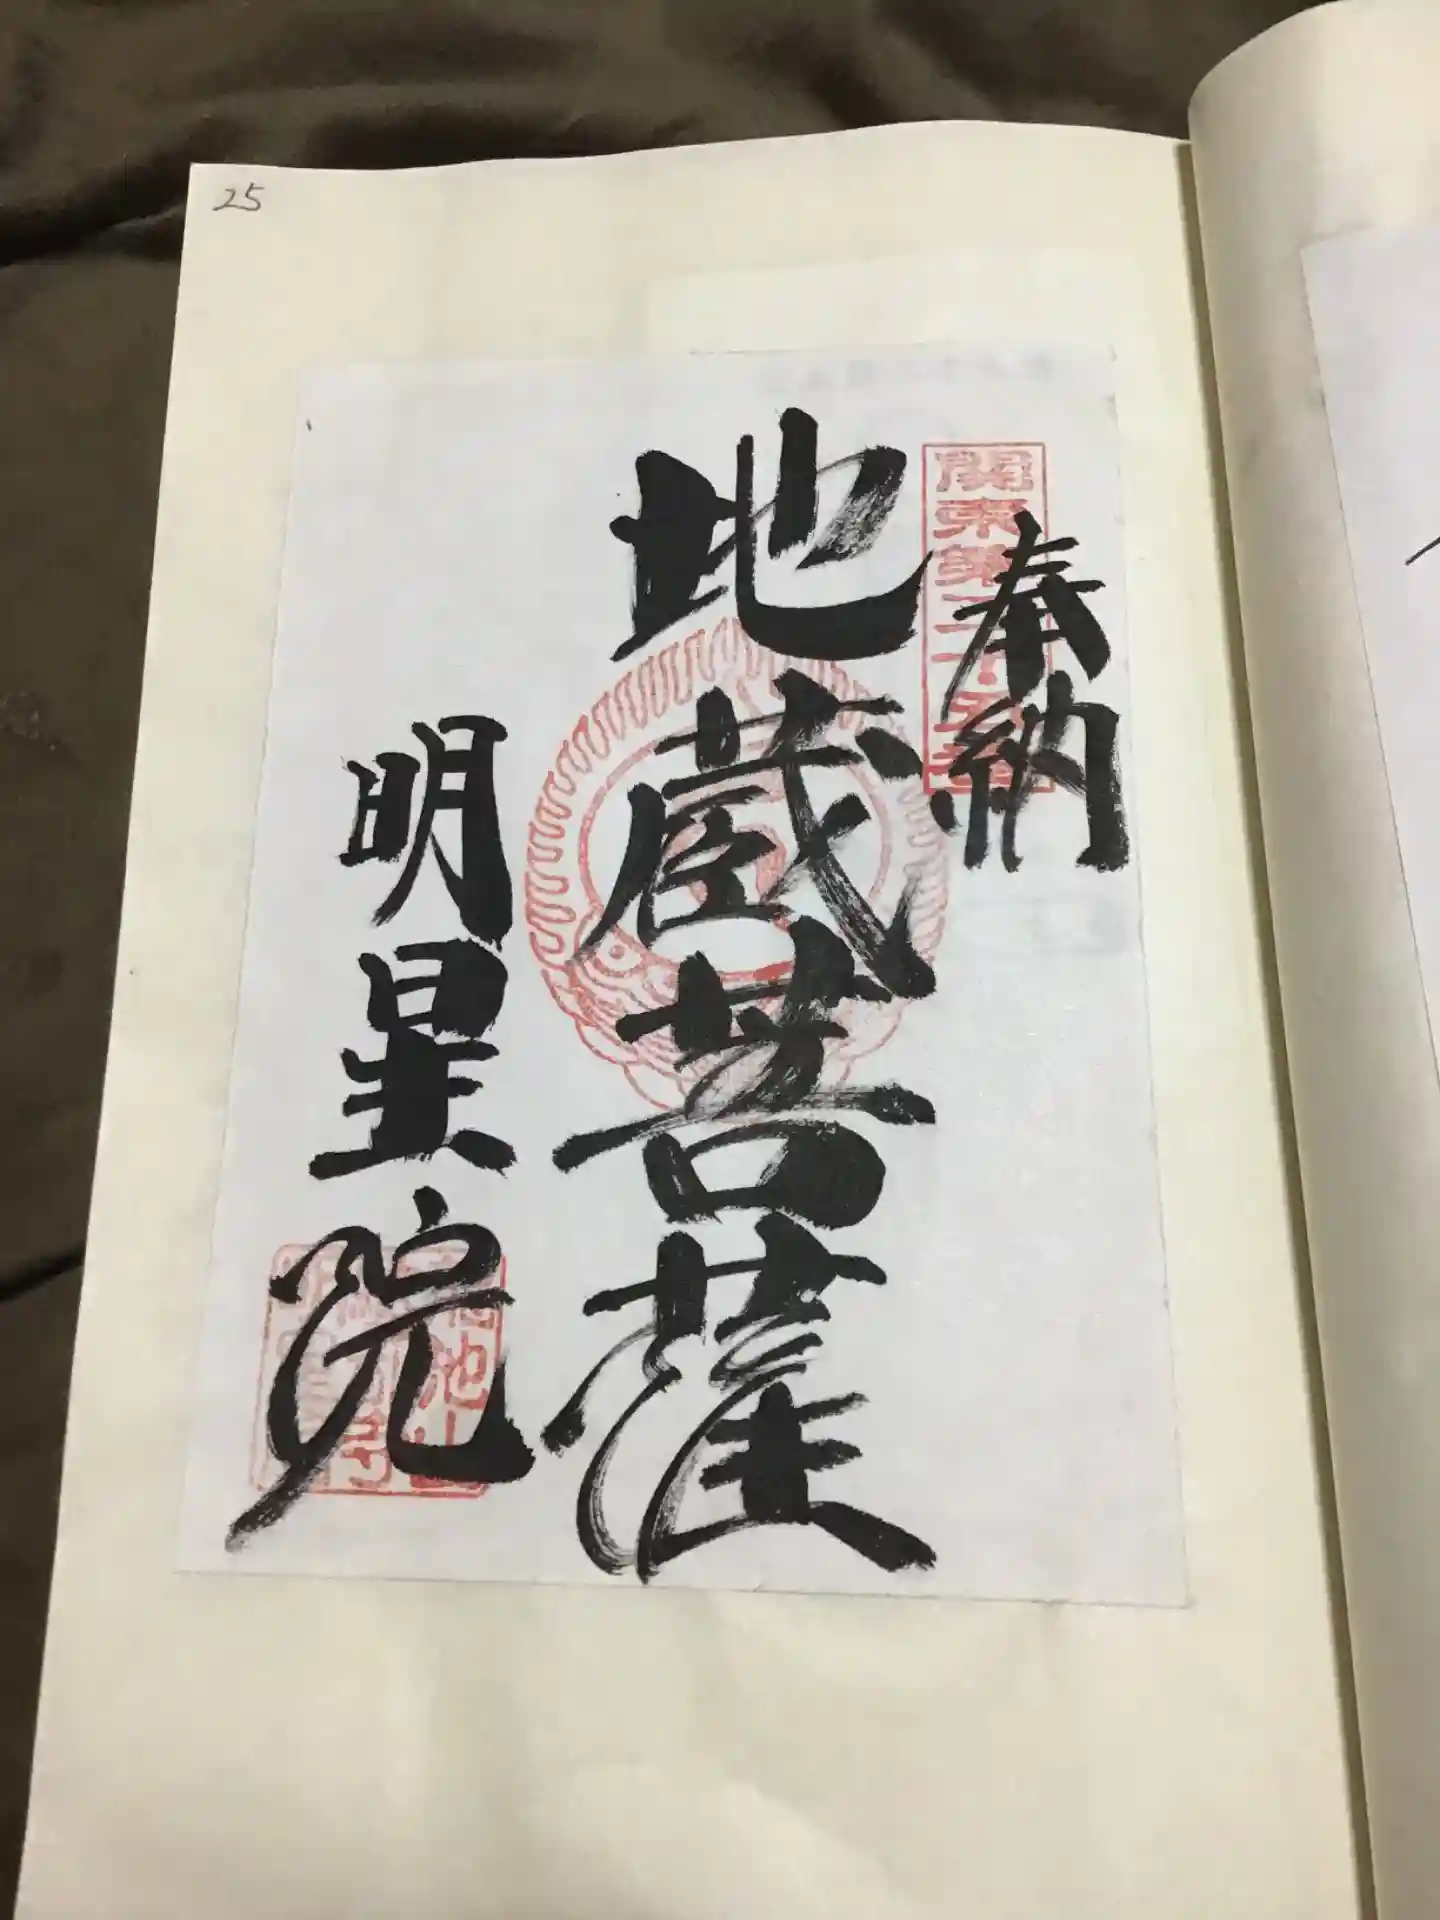 25
奉納
關東第二十五番
地蔵菩薩
明星院